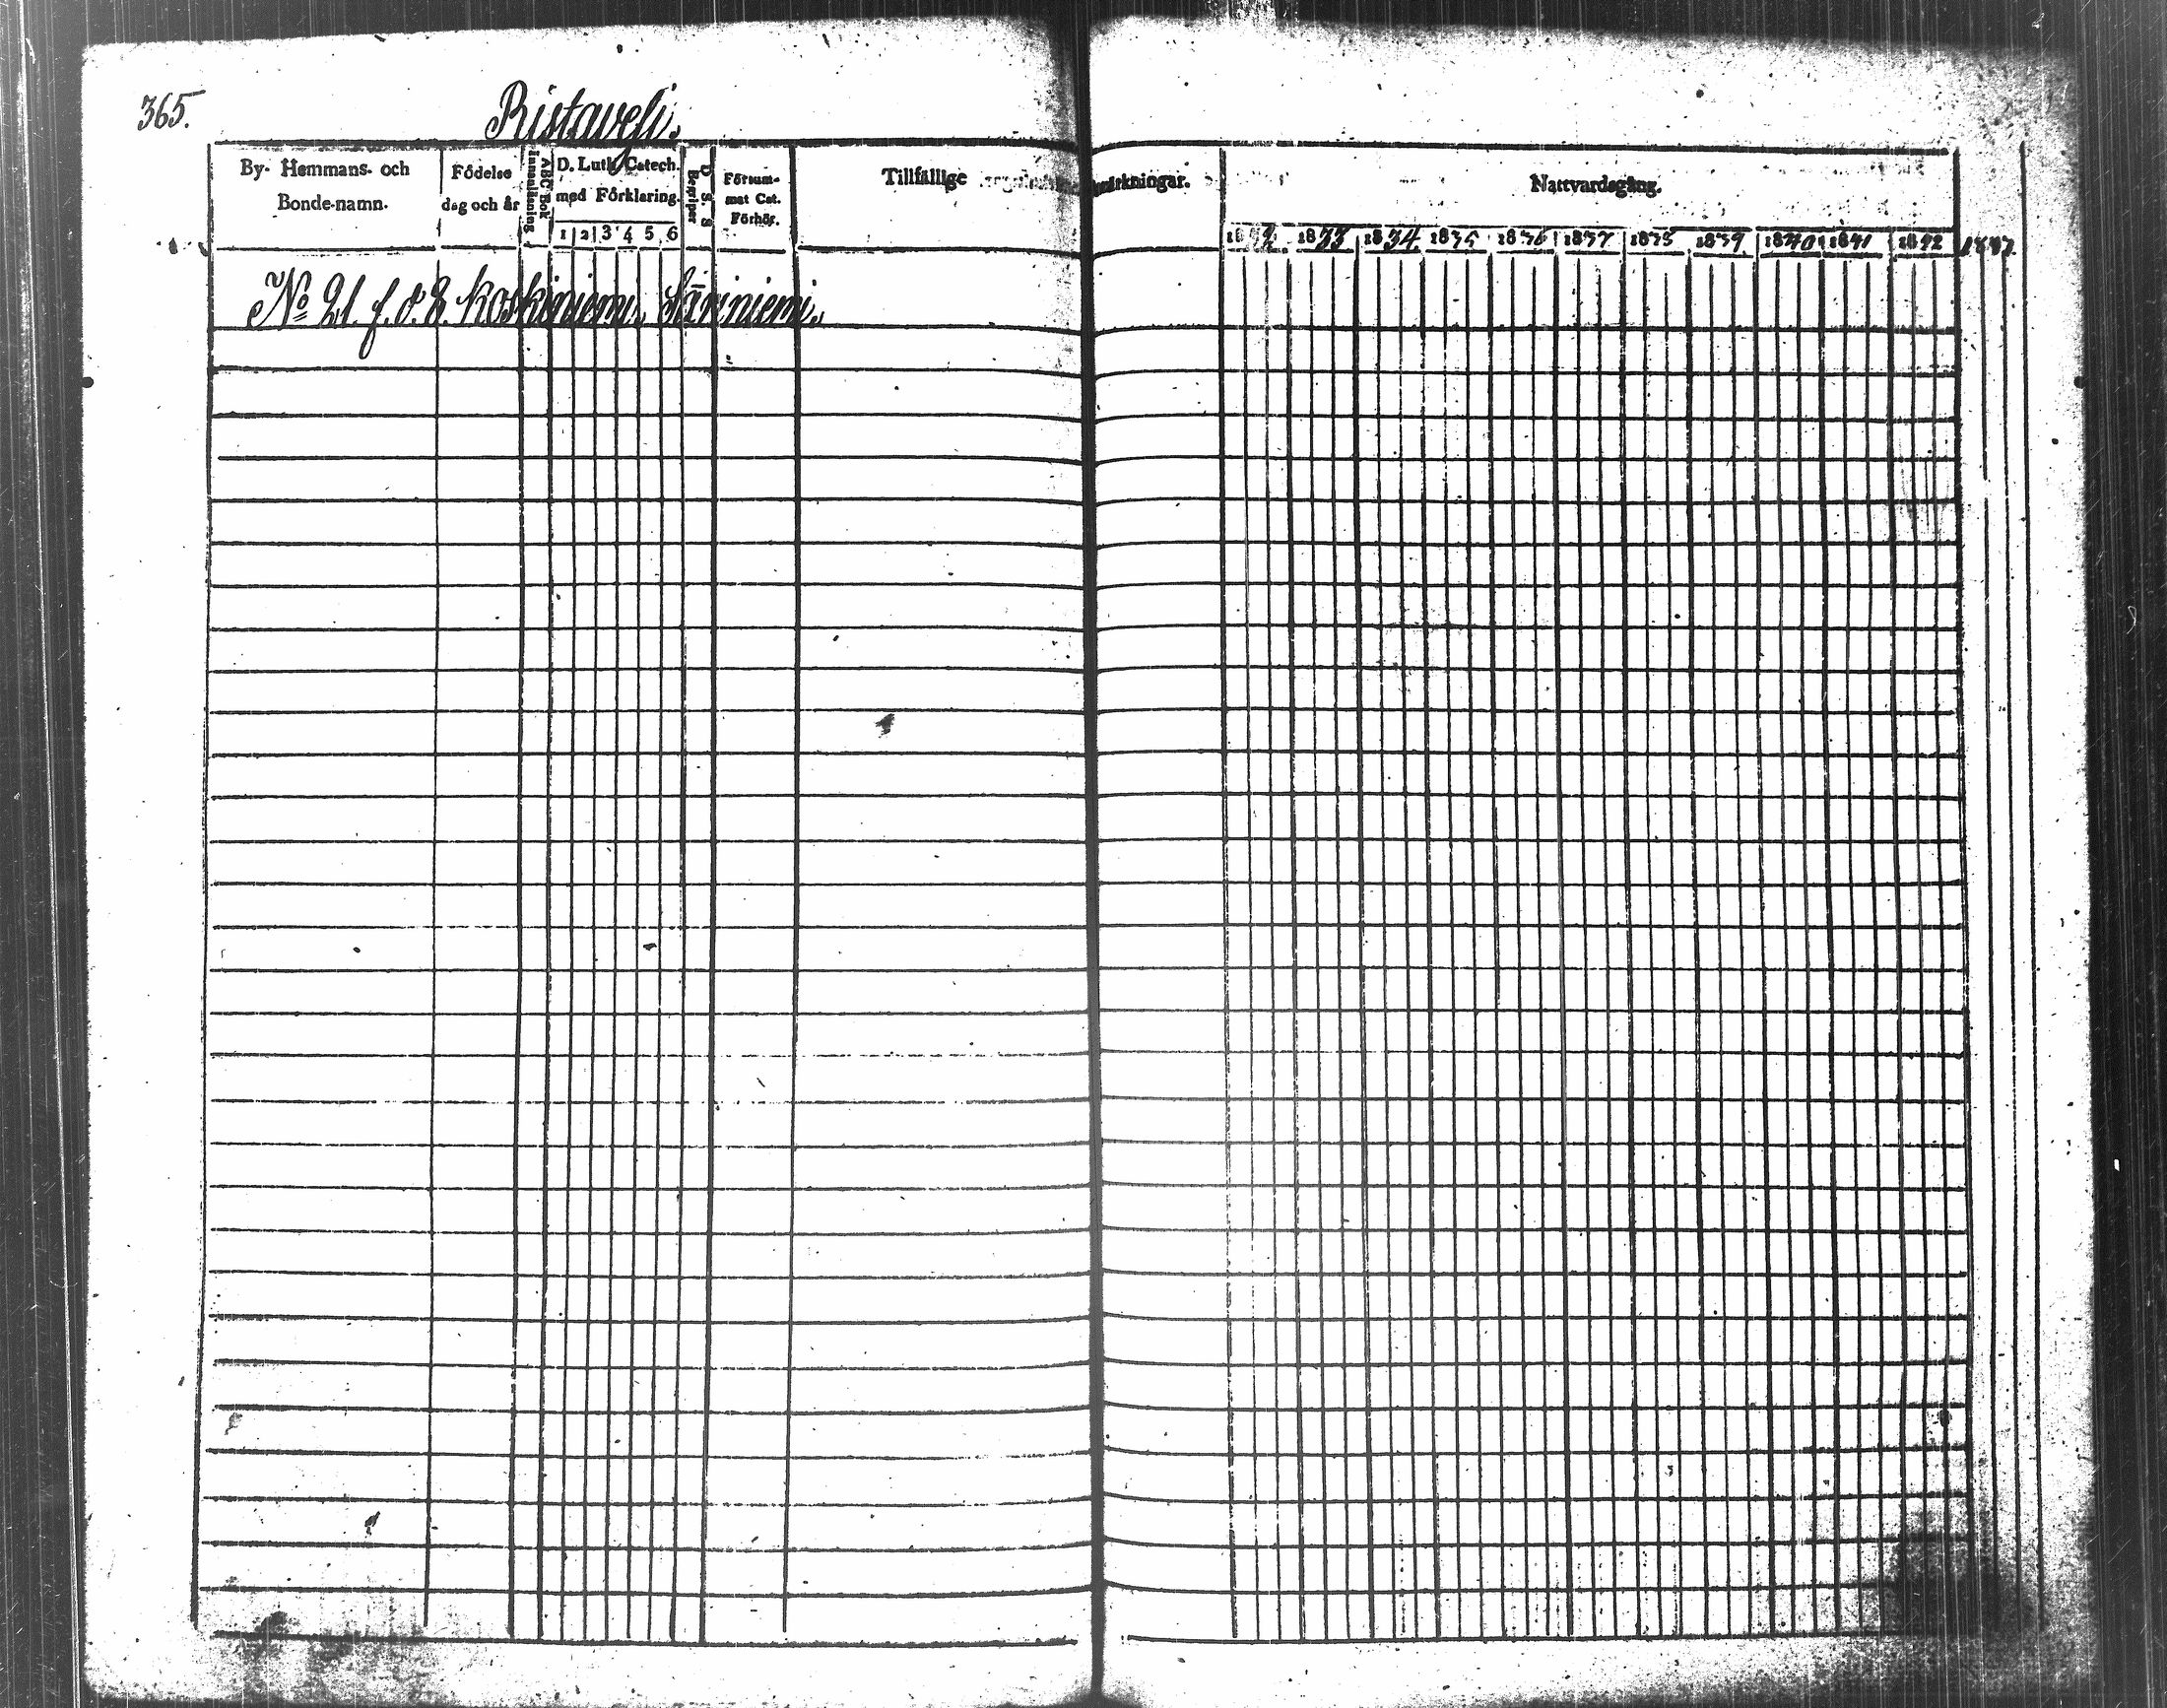 365.
Ristaveli.
By- Hemmans- och
Bonde-namn.
Födelse
dag och år
Innanläsning
ABC Bok
D. Luth. Catech.
med Förklaring.
1 2 3 4 5 6
Begriper
D. S. S
Försum-
mat Cat.
Förhör.
Tillfällige
märkningar.
Nattvardsgång.
1832 1833 1834 1835 1836 1837 1838 1839 1840 1841 1842 1843.
No 21. f. d. 8. Koskiniemi, Säriniemi.